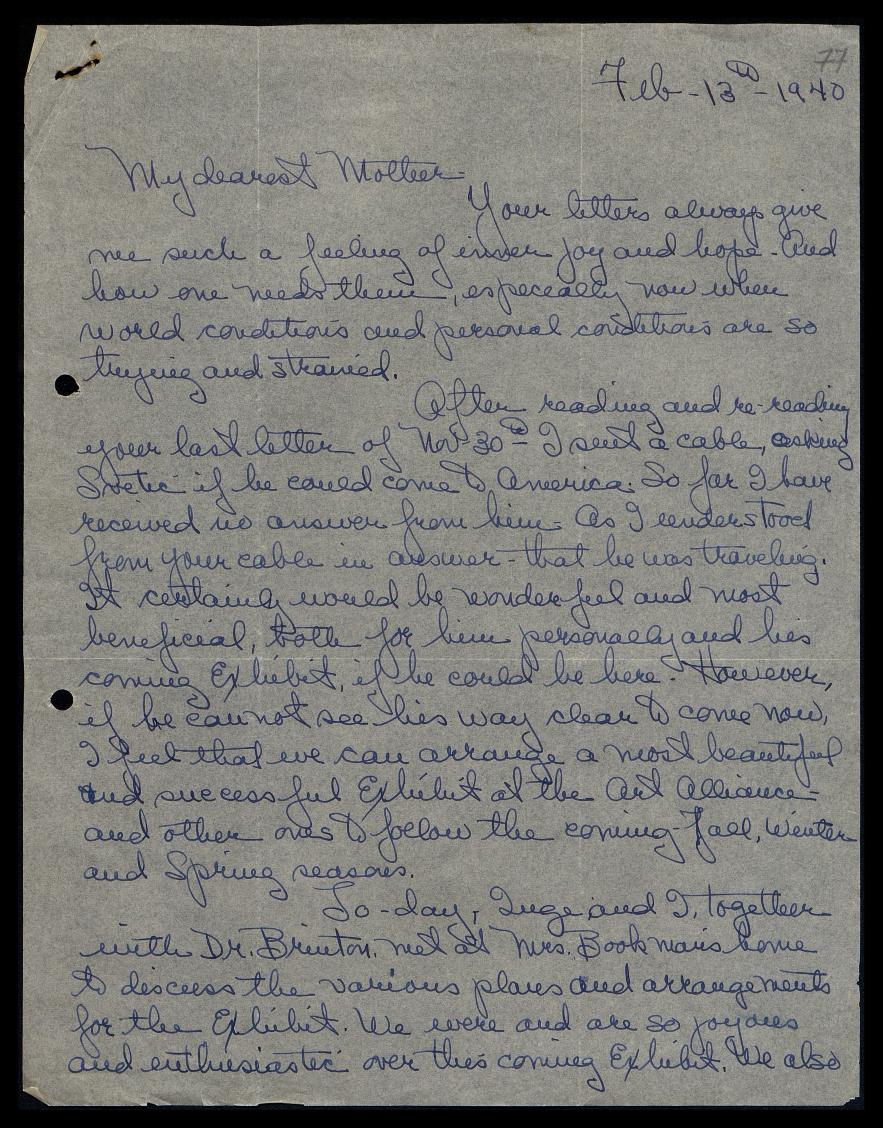 77
Feb-13th-1940
My dearest Mother-
Your letters always give
me such a feeling of inner joy and hope-And
how one needs them, especially now when
world conditions and personal conditions are so
trying and strained.
After reading and re-reading
your last letter of Nov-30th- I sent a cable, asking
Svetic if he could come to America. So far I have
received no answer from him- As I understood
from your cable in answer-that he was traveling.
It certainly would be wonderful and most
beneficial, both for him personally and his
coming Exhibit, if he could be here. However,
if he cannot see his way clear to come now,
I feel that we can arrange a most beautiful
and successful Exhibit at the Art Alliance-
and other ones to follow the coming-Fall, Winter
and Spring seasons.
To-day, Inge and I, together
with Dr. Brinton, met at Mrs. Bookman's home
to discuss the various plans and arrangements
for the Exhibit. We were and are so joyous
and enthusiastic over this coming Exhibit. We also